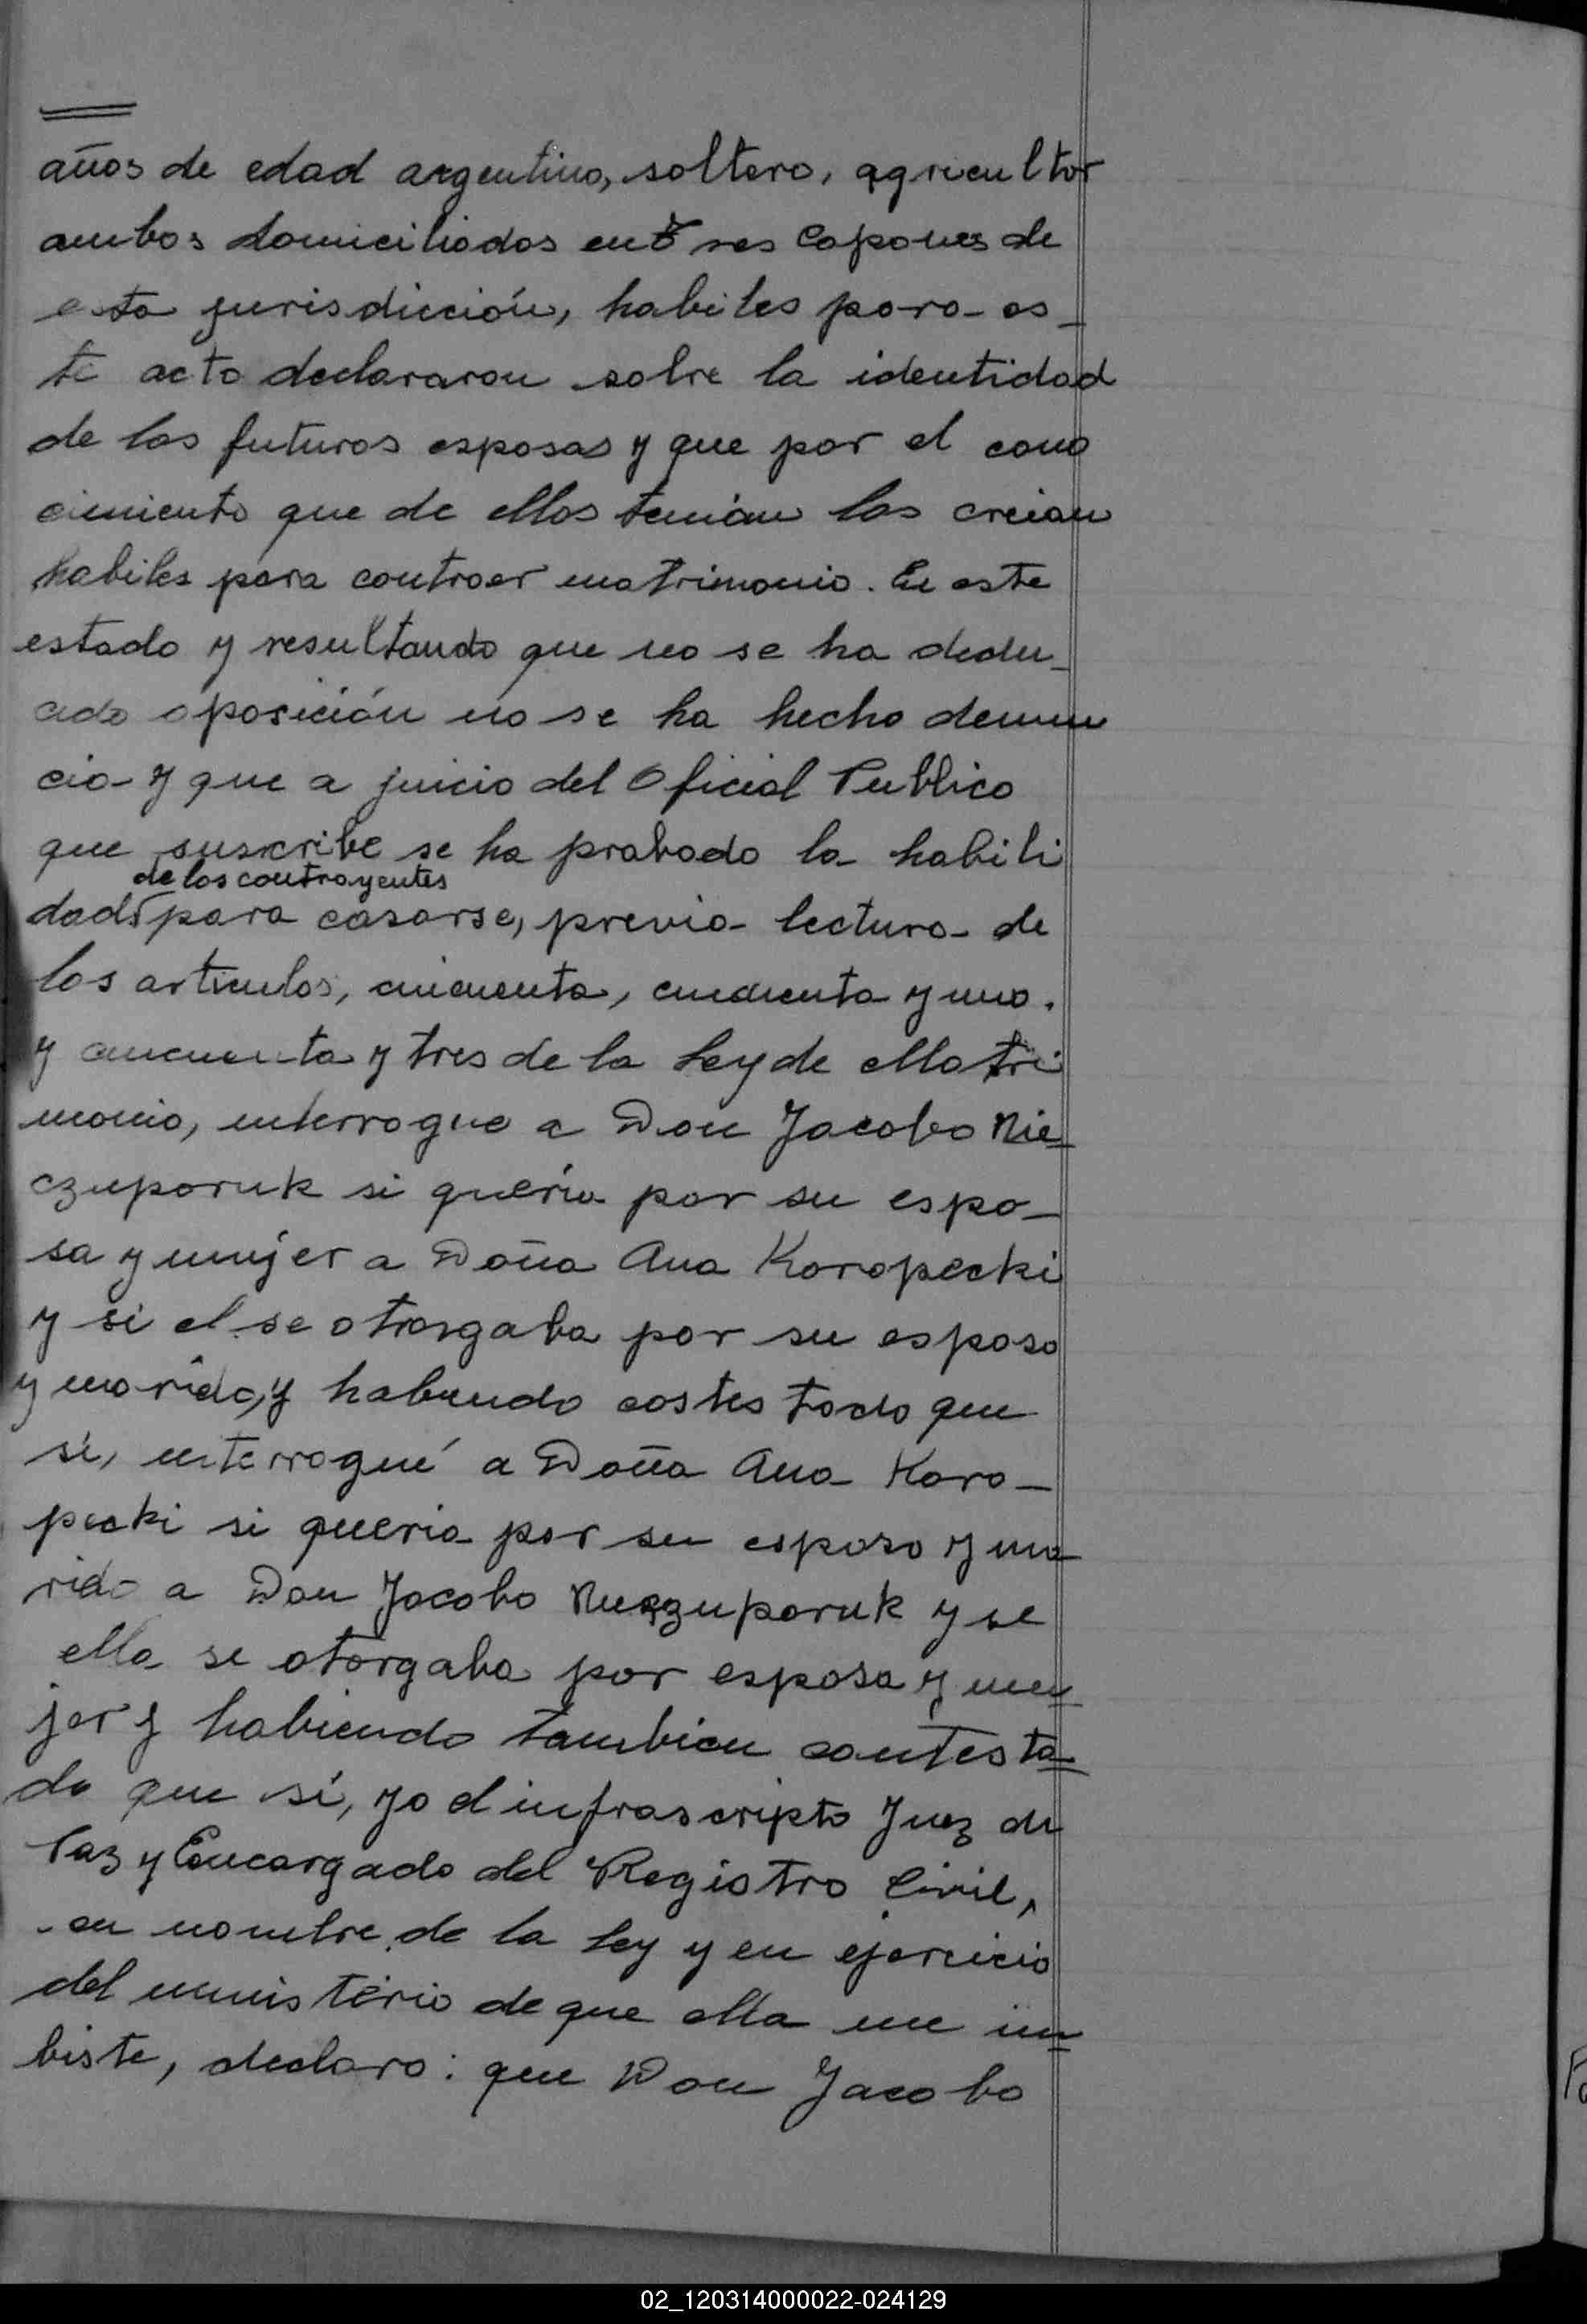 años de edad argentino, soltero, agricultor
ambos domiciliados en Tres Capones de
esta jurisdicción, habiles para es_
te acto declararon sobre la identidad
de los futuros esposos y que por el cono
cimiento que de ellos tenian los creian
habiles para contraer matrimonio. En este
estado y resultando que no se ha dedu_
cido oposición no se ha hecho denun
cia y que a juicio del Oficial Publico
que suscribe se ha probado la habili
de los contrayentes
dad para casarse, previa lectura de
los articulos, cincuenta, cincuenta y uno.
y cincuenta y tres de la Ley de Matri
monio, interrogue a Don Jacobo Nie_
czuporuk si quería por su espo_
sa y mujer a Doña Ana Koropecki
y si el se otrorgaba por su esposo
y marido, y habiendo costestado que
si, interrogué a Doña Ana Koro_
pecki si queria por su esposo y ma
rido a Don Jacobo Nieczuporuk y se
ella se otorgaba por esposa y mu_
jer y habiendo tambien contesta_
do que sí, yo el infrascripto Juez de
Paz y Encargado del Registro Civil,
en nombre de la Ley y en ejercicio
del ministerio de que ella me in_
biste, declaro: que Don Jacobo
02_120314000022-024129